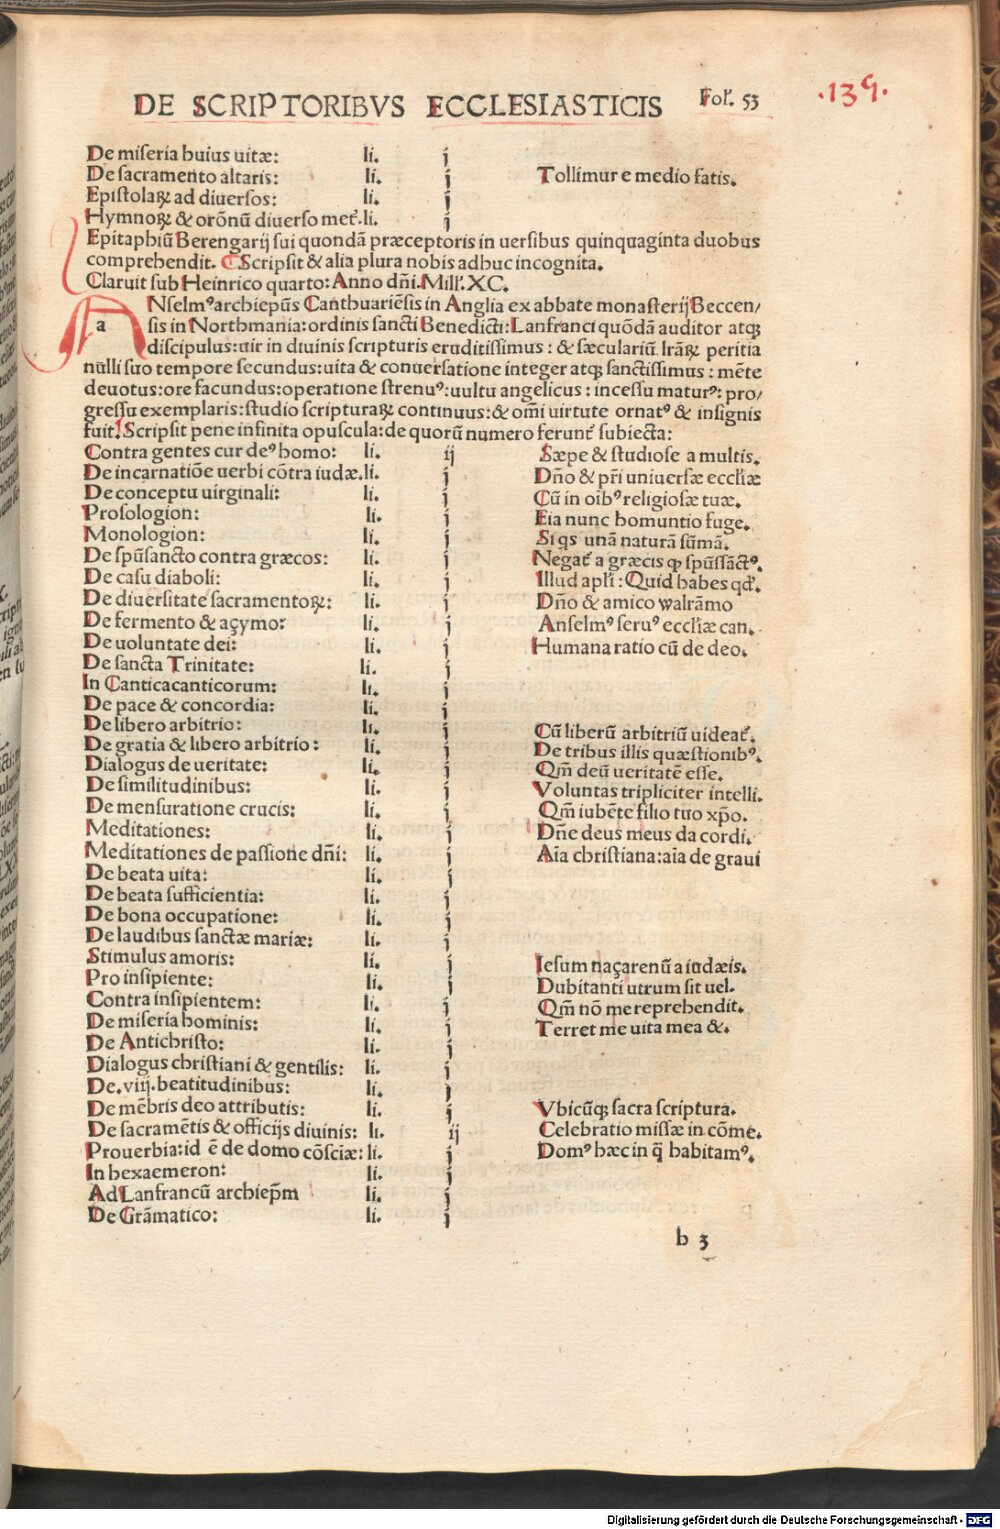 DE SCRIPTORIBVS ECCLESIASTICIS Fol'. 53 .139.
De miseria huius uitæ: li. j
De sacramento altaris: li. j Tollimur e medio fatis.
Epistolaꝝ ad diuersos: li. j
Hymnoꝝ & orõnū diuerso met̃. li. j
Epitaphiū Berengarij sui quondā præceptoris in uersibus quinquaginta duobus
comprehendit. Scripsit & alia plura nobis adhuc incognita.
Claruit sub Heinrico quarto: Anno dñi. Mill'. XC.
a
ANselmꝰ archiepũs Canthuariēsis in Anglia ex abbate monasterij Beccen/
sis in Northmania: ordinis sancti Benedicti: Lanfranci quōdā auditor atqꝫ
discipulus: uir in diuinis scripturis eruditissimus: & sæculariū lrãꝝ peritia
nulli suo tempore secundus: uita & conuersatione integer atqꝫ sanctissimus: mēte
deuotus: ore facundus: operatione strenuꝰ: uultu angelicus: incessu maturꝰ: pro/
gressu exemplaris: studio scripturaꝝ continuus: & om̃i uirtute ornatꝰ & insignis
fuit. Scripsit pene infinita opuscula: de quorū numero ferunt̃ subiecta:
Contra gentes cur deꝰ homo: li. ij Sæpe & studiose a multis.
De incarnatiōe uerbi cōtra iudæ. li. j Dño & pr̃i uniuersæ eccl'iæ
De conceptu uirginali: li. j Cū in oibꝰ religiosæ tuæ.
Prosologion: li. j Eia nunc homuntio fuge.
Monologion: li. j Si qs unā naturā sūmā.
De spūsancto contra græcos: li. j Negat̃ a græcis ꝙ spūssāctꝰ.
De casu diaboli: li. j Illud apl'i: Quid habes qđ.
De diuersitate sacramentoꝝ: li. j Dño & amico walrāmo
De fermento & açymo: li. j Anselmꝰ seruꝰ eccl'iæ can.
De uoluntate dei: li. j Humana ratio cū de deo.
De sancta Trinitate: li. j
In Canticacanticorum: li. j
De pace & concordia: li. j
De libero arbitrio: li. j Cū liberū arbitriū uideat̃.
De gratia & libero arbitrio: li. j De tribus illis quæstionibꝰ.
Dialogus de ueritate: li. j Qm̃ deū ueritatē esse.
De similitudinibus: li. j Voluntas tripliciter intelli.
De mensuratione crucis: li. j Qm̃ iubēte filio tuo xp̄o.
Meditationes: li. j Dñe deus meus da cordi.
Meditationes de passione dñi: li. j Aĩa christiana: aĩa de graui
De beata uita: li. j
De beata sufficientia: li. j
De bona occupatione: li. j
De laudibus sanctæ mariæ: li. j
Stimulus amoris: li. j Iesum naçarenū a iudæis.
Pro insipiente: li. j Dubitanti utrum sit uel.
Contra insipientem: li. j Qm̃ nō me reprehendit.
De miseria hominis: li. j Terret me uita mea &.
De Antichristo: li. j
Dialogus christiani & gentilis: li. j
De .viij. beatitudinibus: li. j
De mēbris deo attributis: li. j Vbicūqꝫ sacra scriptura.
De sacramētis & officijs diuinis: li. ij Celebratio missæ in cōme.
Prouerbia: id ē de domo cōsciæ: li. j Domꝰ hæc in q̃ habitamꝰ.
In hexaemeron: li. j
Ad Lanfrancū archiep̄m li. j
De Grāmatico: li. j
b 3
Digitalisierung gefördert durch die Deutsche Forschungsgemeinschaft - DFG